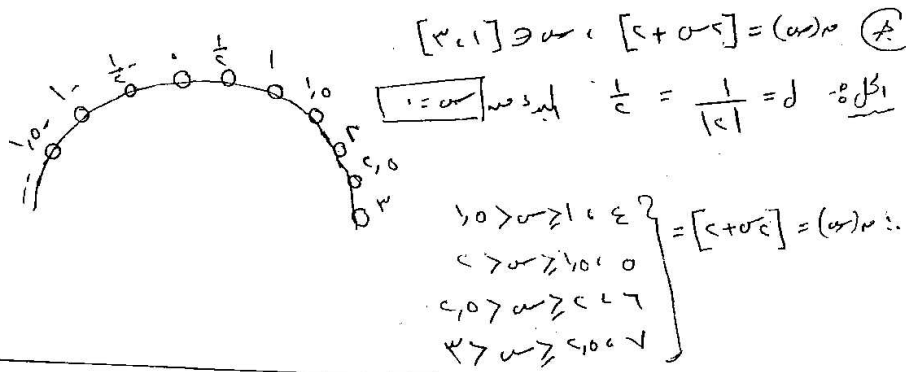 (م) ص(س) = [٢س + ٢] ، س ∈ [١، ٣]
الحل :- ل = ١/|٢| = ١/٢ نبدأ من س = ٠
-١,٥ -١ -١/٢ ٠ ١/٢ ١ ١,٥ ٢ ٢,٥ ٣
∴ ص(س) = [٢س + ٢] = {
٤ ، ١ ≤ س < ١,٥
٥ ، ١,٥ ≤ س < ٢
٦ ، ٢ ≤ س < ٢,٥
٧ ، ٢,٥ ≤ س < ٣